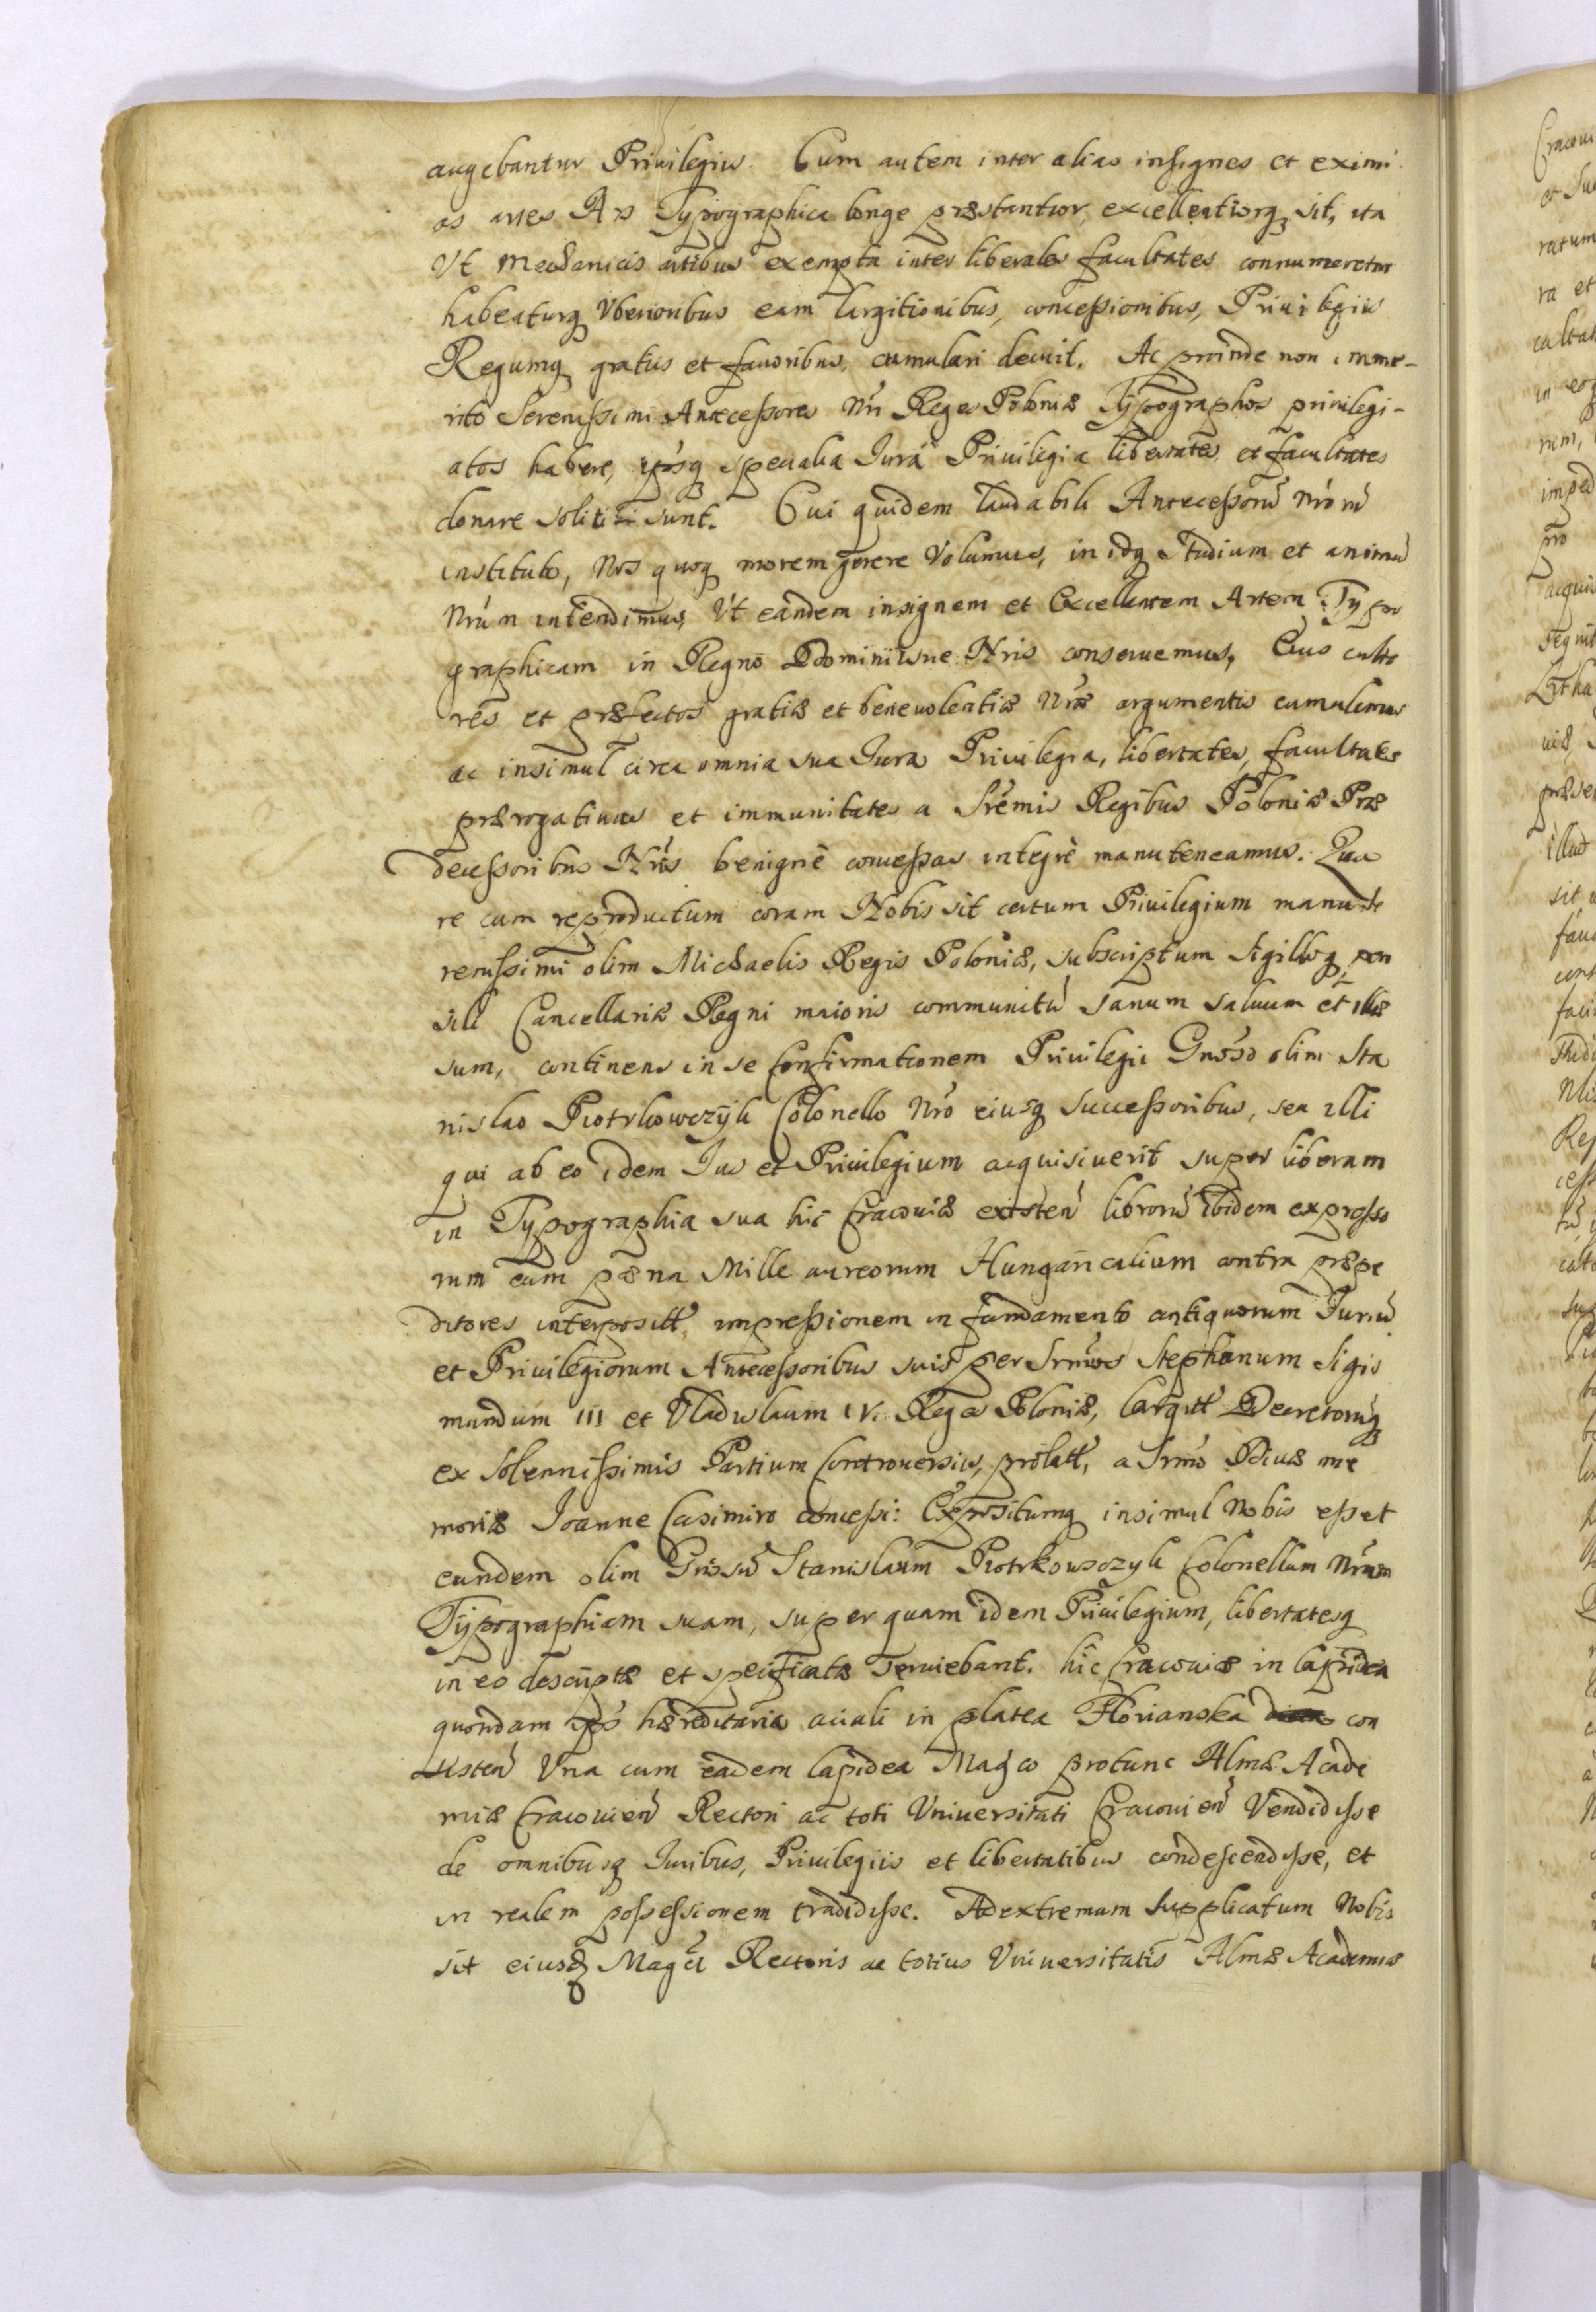 augebantur Priuilegijs. Cum autem inter alias insignes et eximi
as artes Ars Typographica longe præstantior, excellentiorq sit, ita
Vt Mechanicis artibus exempta inter liberales facultates connumeretur
habeaturq Vberioribus eam largitionibus, concessionibus, Priuilegijs
Regumq gratijs et fauoribus, cumulari decuit. Ac proinde non imme-
rito Serenissimi Antecessores Nri Reges Poloniæ Typographos priuilegi-
atos habere, ipsosq specialia Iura Priuilegia libertates et facultates
donare soliti sunt. Cui quidem laudabili Antecessorũ Nrorũ
instituto, Nos quoq morem gerere Volumus, in idq studium et animũ
Nrũm intendimus, Vt eandem insignem et Excellentem Artem Typo
graphicam in Regno Dominijsne Nris conseruemus, Eius culto
res et præfectos gratiæ et beneuolentiæ Nræ argumentis cumulemus
ac insimul circa omnia sua Iura Priuilegia, libertates, facultates
prærogatiuas et immunitates a Srẽmis Regibus Poloniæ Præ
decessoribus Nris benignè concessas integrè manuteneamus. Qua
re cum reproductum coram Nobis sit certum Priuilegium manu Se
renissimi olim Michaelis Regis Poloniæ, subscriptum Sigilloq pen
sili Cancellariæ Regni maioris communitũ sanum saluum et illæ
sum, continens in se Confirmationem Priuilegij Gnoso olim Sta
nislao Piotrkowczÿk Colonello Nro eiusq successoribus, seu illi
qui ab eo idem Ius et Priuilegium acquisiuerit super liberam
in Typographia sua hic Cracouiæ existeñ librorũ ibidem expresso
rum cum pæna Mille aureorum Hungaricalium contra præpe
ditores interposita, impressionem in fundamento antiquorum Juriũ
et Priuilegiorum Antecessoribus suis per Srmos Stephanum Sigis
mundum III et Vladislaum IV. Reges Poloniæ, largit Decretorũq
ex solennissimis Partium Controuersijs, prolat, a Srmo Diuæ me
moriæ Ioanne Casimiro concessi: Expositumq insimul Nobis esset
eundem olim Gnosũ Stanislaum Piotrkowczyk Colonellum Nrum
Typographiam suam, super quam idem Priuilegium, libertatesq
in eo descriptæ et specificatæ seruiebant, hic Cracouiæ in lapidea
quondam ipsi hæreditaria auali in platea Florianska con
sisteñ Vna cum eadem lapidea Magco protunc Almæ Acade
miæ Cracouieñ Rectori ac toti Vniuersitati Cracouieñ Vendidisse
de omnibusq Iuribus, Priuilegiis et libertatibus condescendisse, et
in realem possessionem tradidisse. Ad extremum supplicatum Nobis
sit eiusd Magci Rectoris ac totius Vniuersitatis Almæ Academiæ